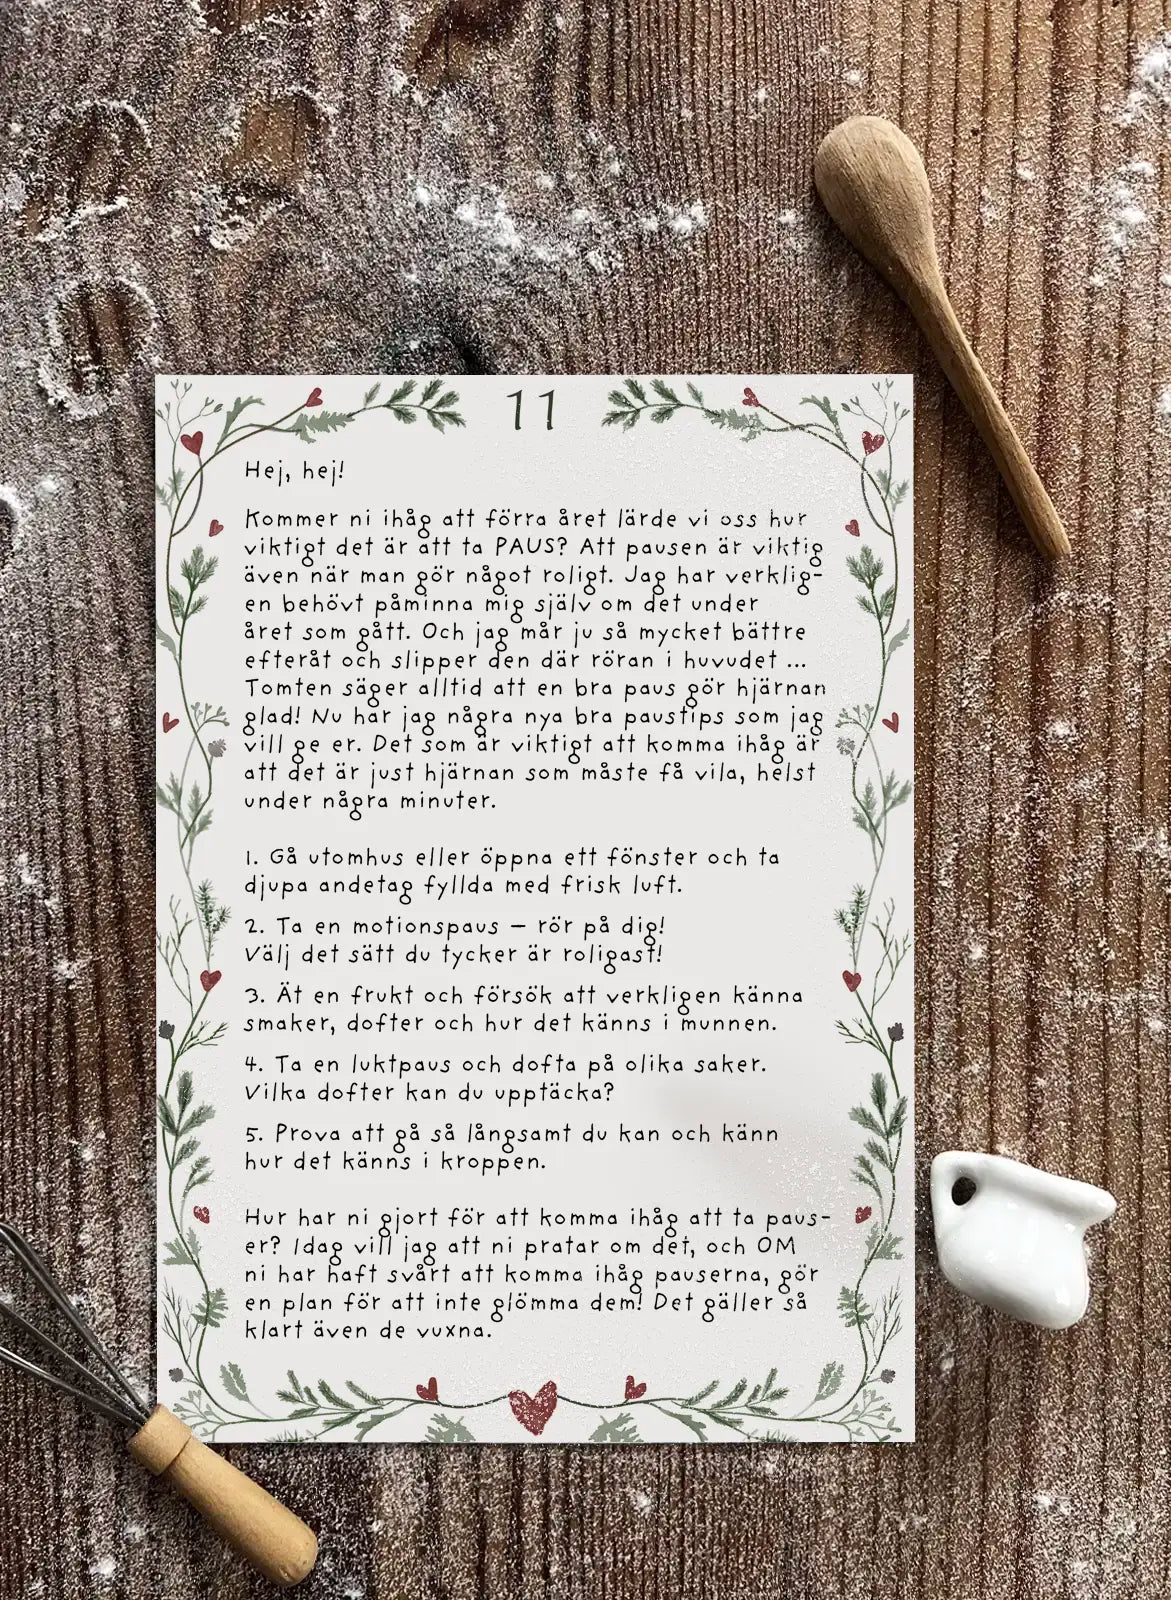 11
Hej, hej!
Kommer ni ihåg att förra året lärde vi oss hur
viktigt det är att ta PAUS? Att pausen är viktig
även när man gör något roligt. Jag har verklig-
en behövt påminna mig själv om det under
året som gått. Och jag mår ju så mycket bättre
efteråt och slipper den där röran i huvudet ...
Tomten säger alltid att en bra paus gör hjärnan
glad! Nu har jag några nya bra paustips som jag
vill ge er. Det som är viktigt att komma ihåg är
att det är just hjärnan som måste få vila, helst
under några minuter.
1. Gå utomhus eller öppna ett fönster och ta
djupa andetag fyllda med frisk luft.
2. Ta en motionspaus – rör på dig!
Välj det sätt du tycker är roligast!
3. Ät en frukt och försök att verkligen känna
smaker, dofter och hur det känns i munnen.
4. Ta en luktpaus och dofta på olika saker.
Vilka dofter kan du upptäcka?
5. Prova att gå så långsamt du kan och känn
hur det känns i kroppen.
Hur har ni gjort för att komma ihåg att ta paus-
er? Idag vill jag att ni pratar om det, och OM
ni har haft svårt att komma ihåg pauserna, gör
en plan för att inte glömma dem! Det gäller så
klart även de vuxna.